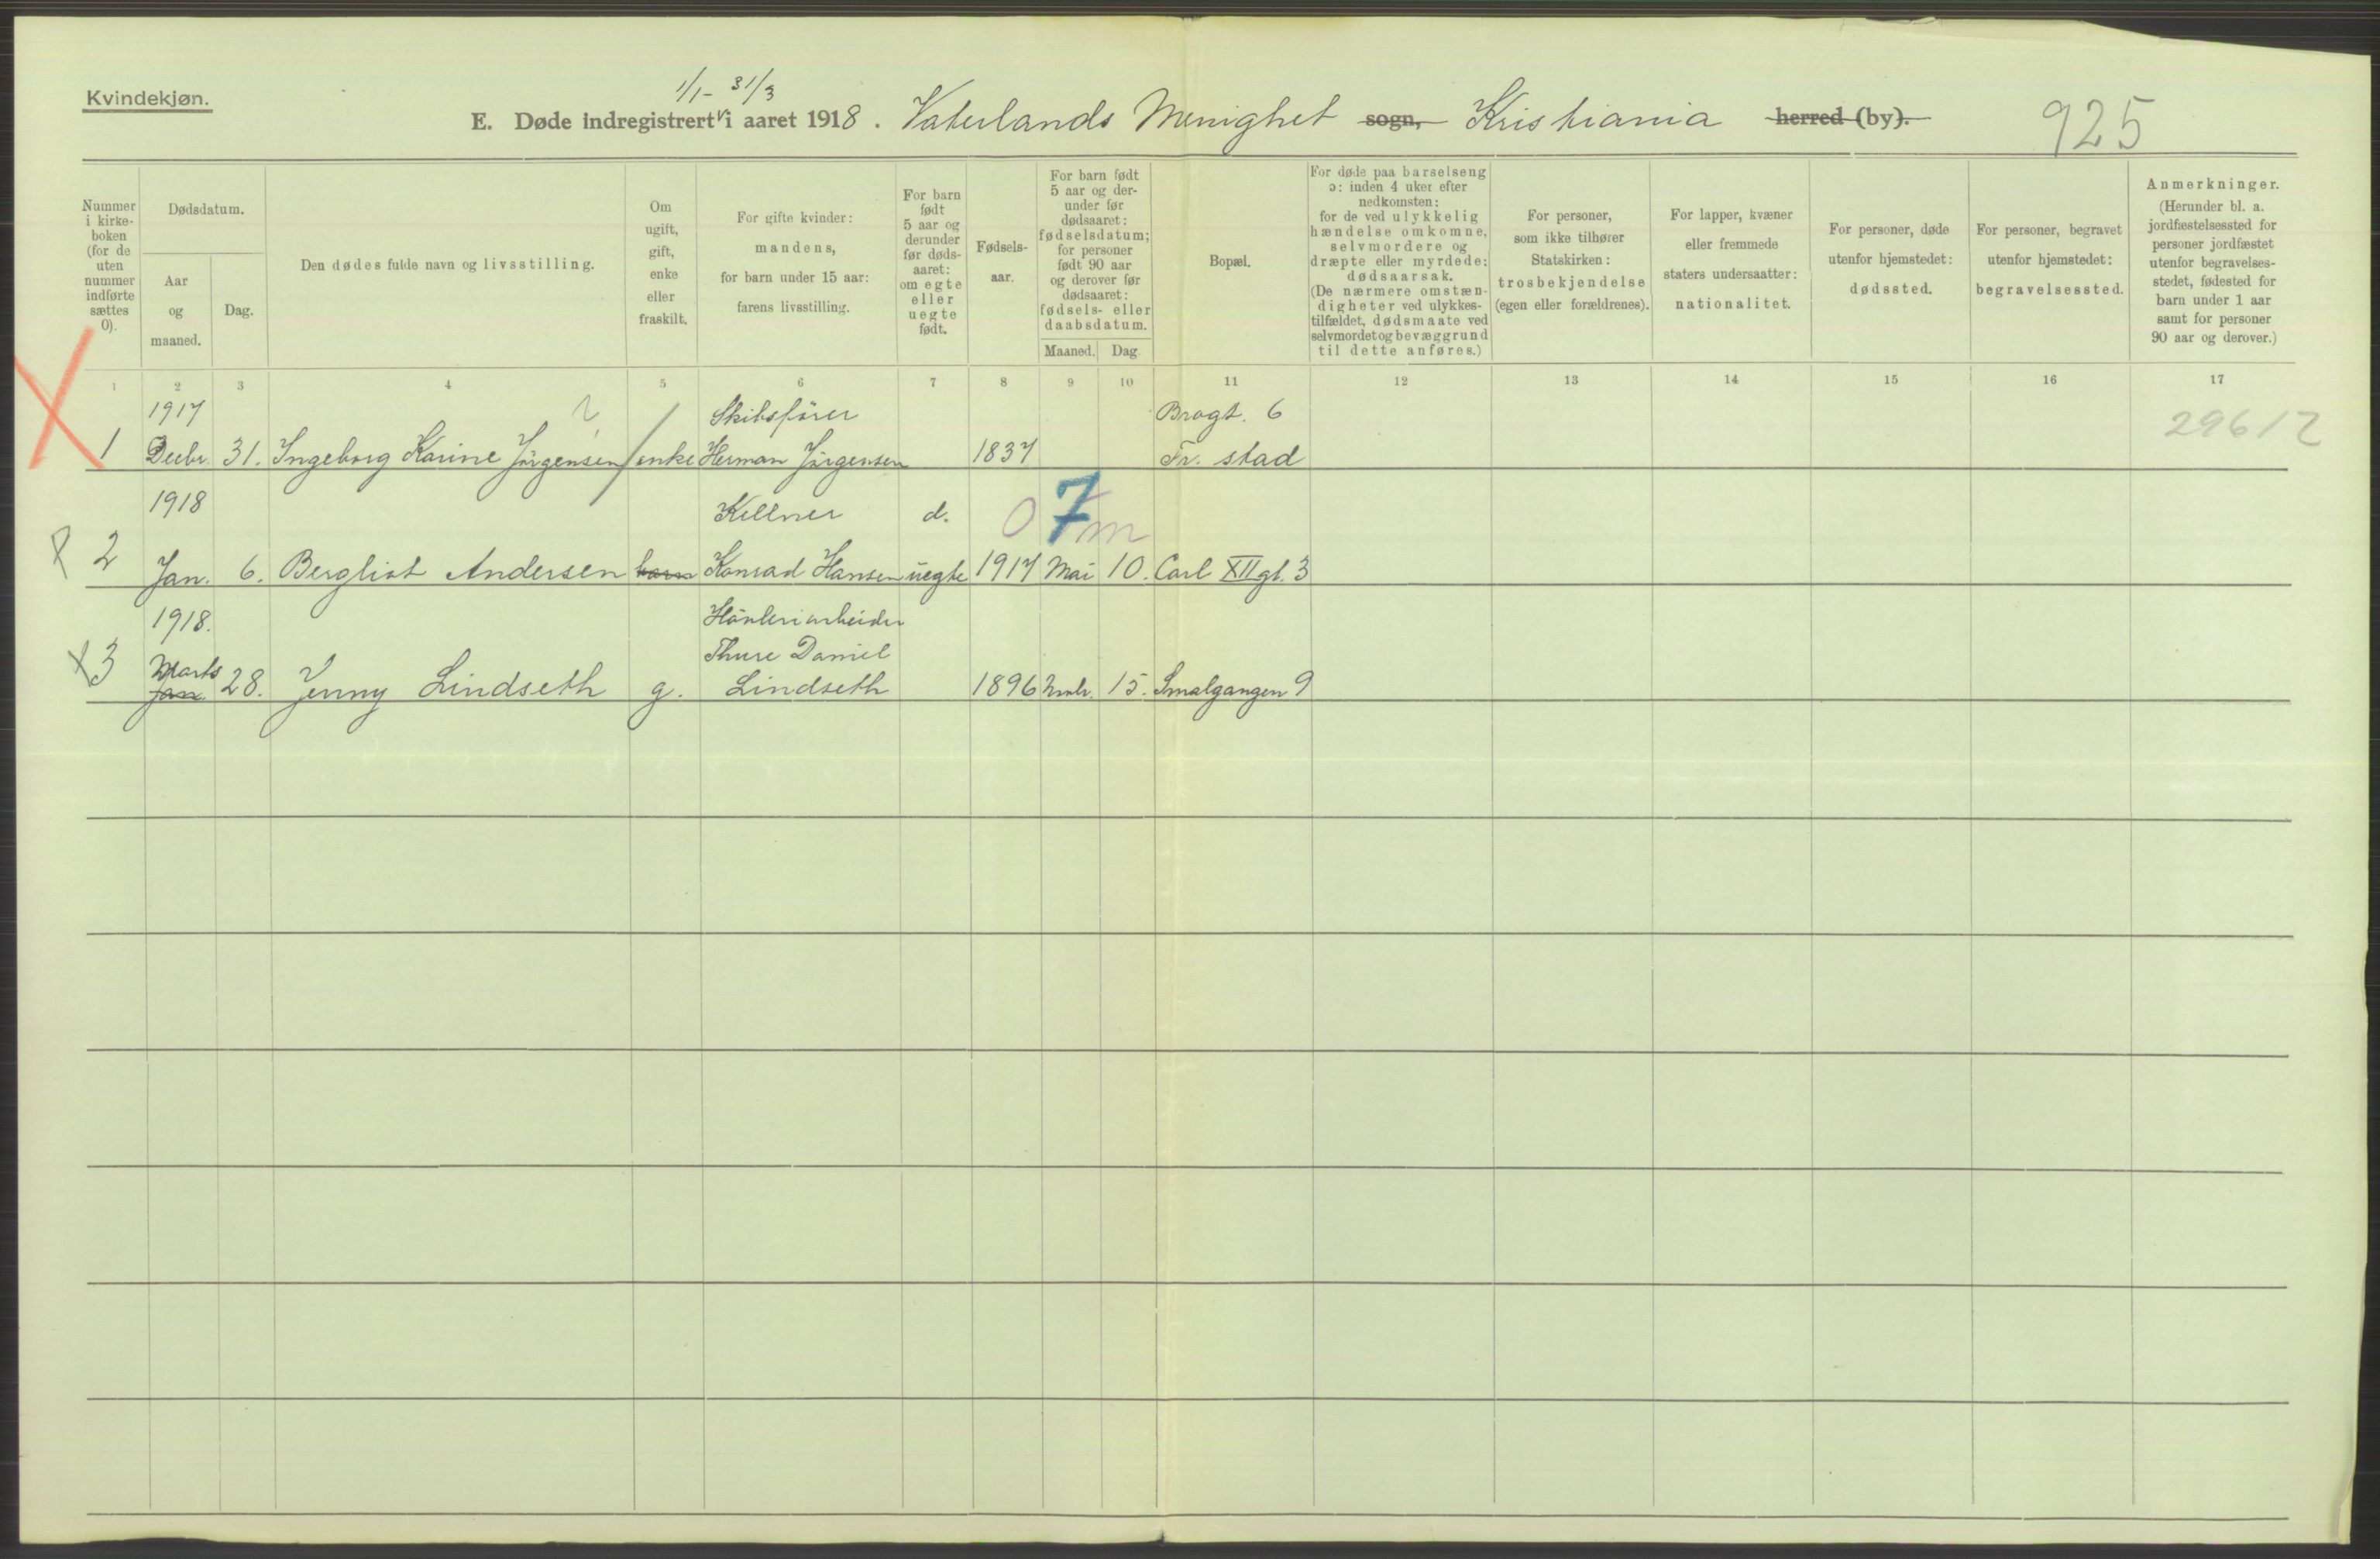 Kvindekjøn.
1/1- 31/3
E. Døde indregistrert i aaret 1918. Vaterlands Menighet sogn, Kristiania herred (by).
925
Nummer i kirkeboken (for de uten nummer indførte sættes 0).
Dødsdatum.
Aar og maaned.
Dag.
Den dødes fulde navn og livsstilling.
Om ugift, gift, enke eller fraskilt.
For gifte kvinder: mandens, for barn under 15 aar: farens livsstilling.
For barn født 5 aar og derunder før dødsaaret: om egte eller uegte født.
Fødselsaar.
For barn født 5 aar og derunder før dødsaaret: fødselsdatum; for personer født 90 aar og derover før dødsaaret: fødsels- eller daabsdatum.
Maaned. Dag.
Bopæl.
For døde paa barselseng ɔ: inden 4 uker efter nedkomsten; for de ved ulykkelig hændelse omkomne, selvmordere og dræpte eller myrdede: dødsaarsak. (De nærmere omstændigheter ved ulykkestilfældet, dødsmaate ved selvmordet og bevæggrund til dette anføres.)
For personer, som ikke tilhører Statskirken: trosbekjendelse (egen eller forældrenes).
For lapper, kvæner eller fremmede staters undersaatter: nationalitet.
For personer, døde utenfor hjemstedet: dødssted.
For personer, begravet utenfor hjemstedet: begravelsessted.
Anmerkninger. (Herunder bl. a. jordfæstelsessted for personer jordfæstet utenfor begravelsesstedet, fødested for barn under 1 aar samt for personer 90 aar og derover.)
1 2 3 4 5 6 7 8 9 10 11 12 13 14 15 16 17
1917 Skibsfører Brogt. 6 29612
1 Decbr. 31. Ingeborg Karine Jørgensen enke Herman Jørgensen 1837 Fr. stad
1918 Kellner d. 0 7 m
2 Jan. 6. Bergliot Andersen barn Konrad Hansen uegte 1917 Mai 10. Carl XII gt. 3
1918. Høvleriarbeider
Thure Daniel
3 Marts Jan. 28. Jenny Lindseth g. Lindseth 1896 15. Smalgangen 9